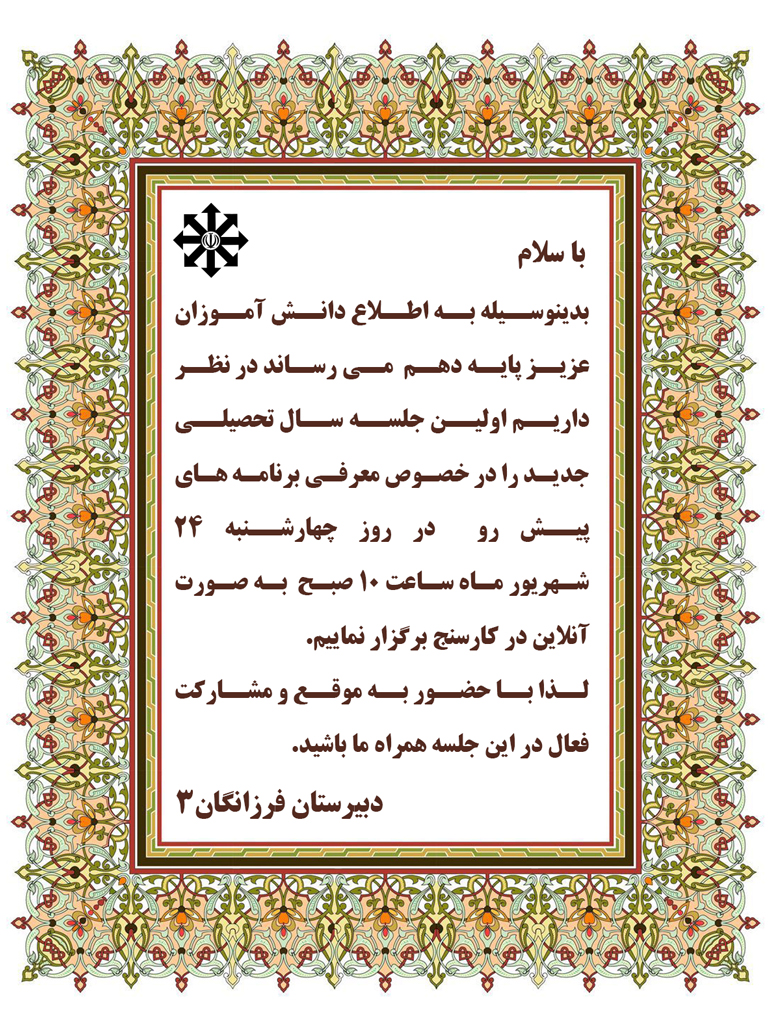 با سلام
بدینوسیله به اطلاع دانش آموزان
عزیز پایه دهم می رساند در نظر
داریم اولین جلسه سال تحصیلی
جدید را در خصوص معرفی برنامه های
پیش رو در روز چهارشنبه ۲۴
شهریور ماه ساعت ۱۰ صبح به صورت
آنلاین در کارسنج برگزار نماییم.
لذا با حضور به موقع و مشارکت
فعال در این جلسه همراه ما باشید.
دبیرستان فرزانگان۳